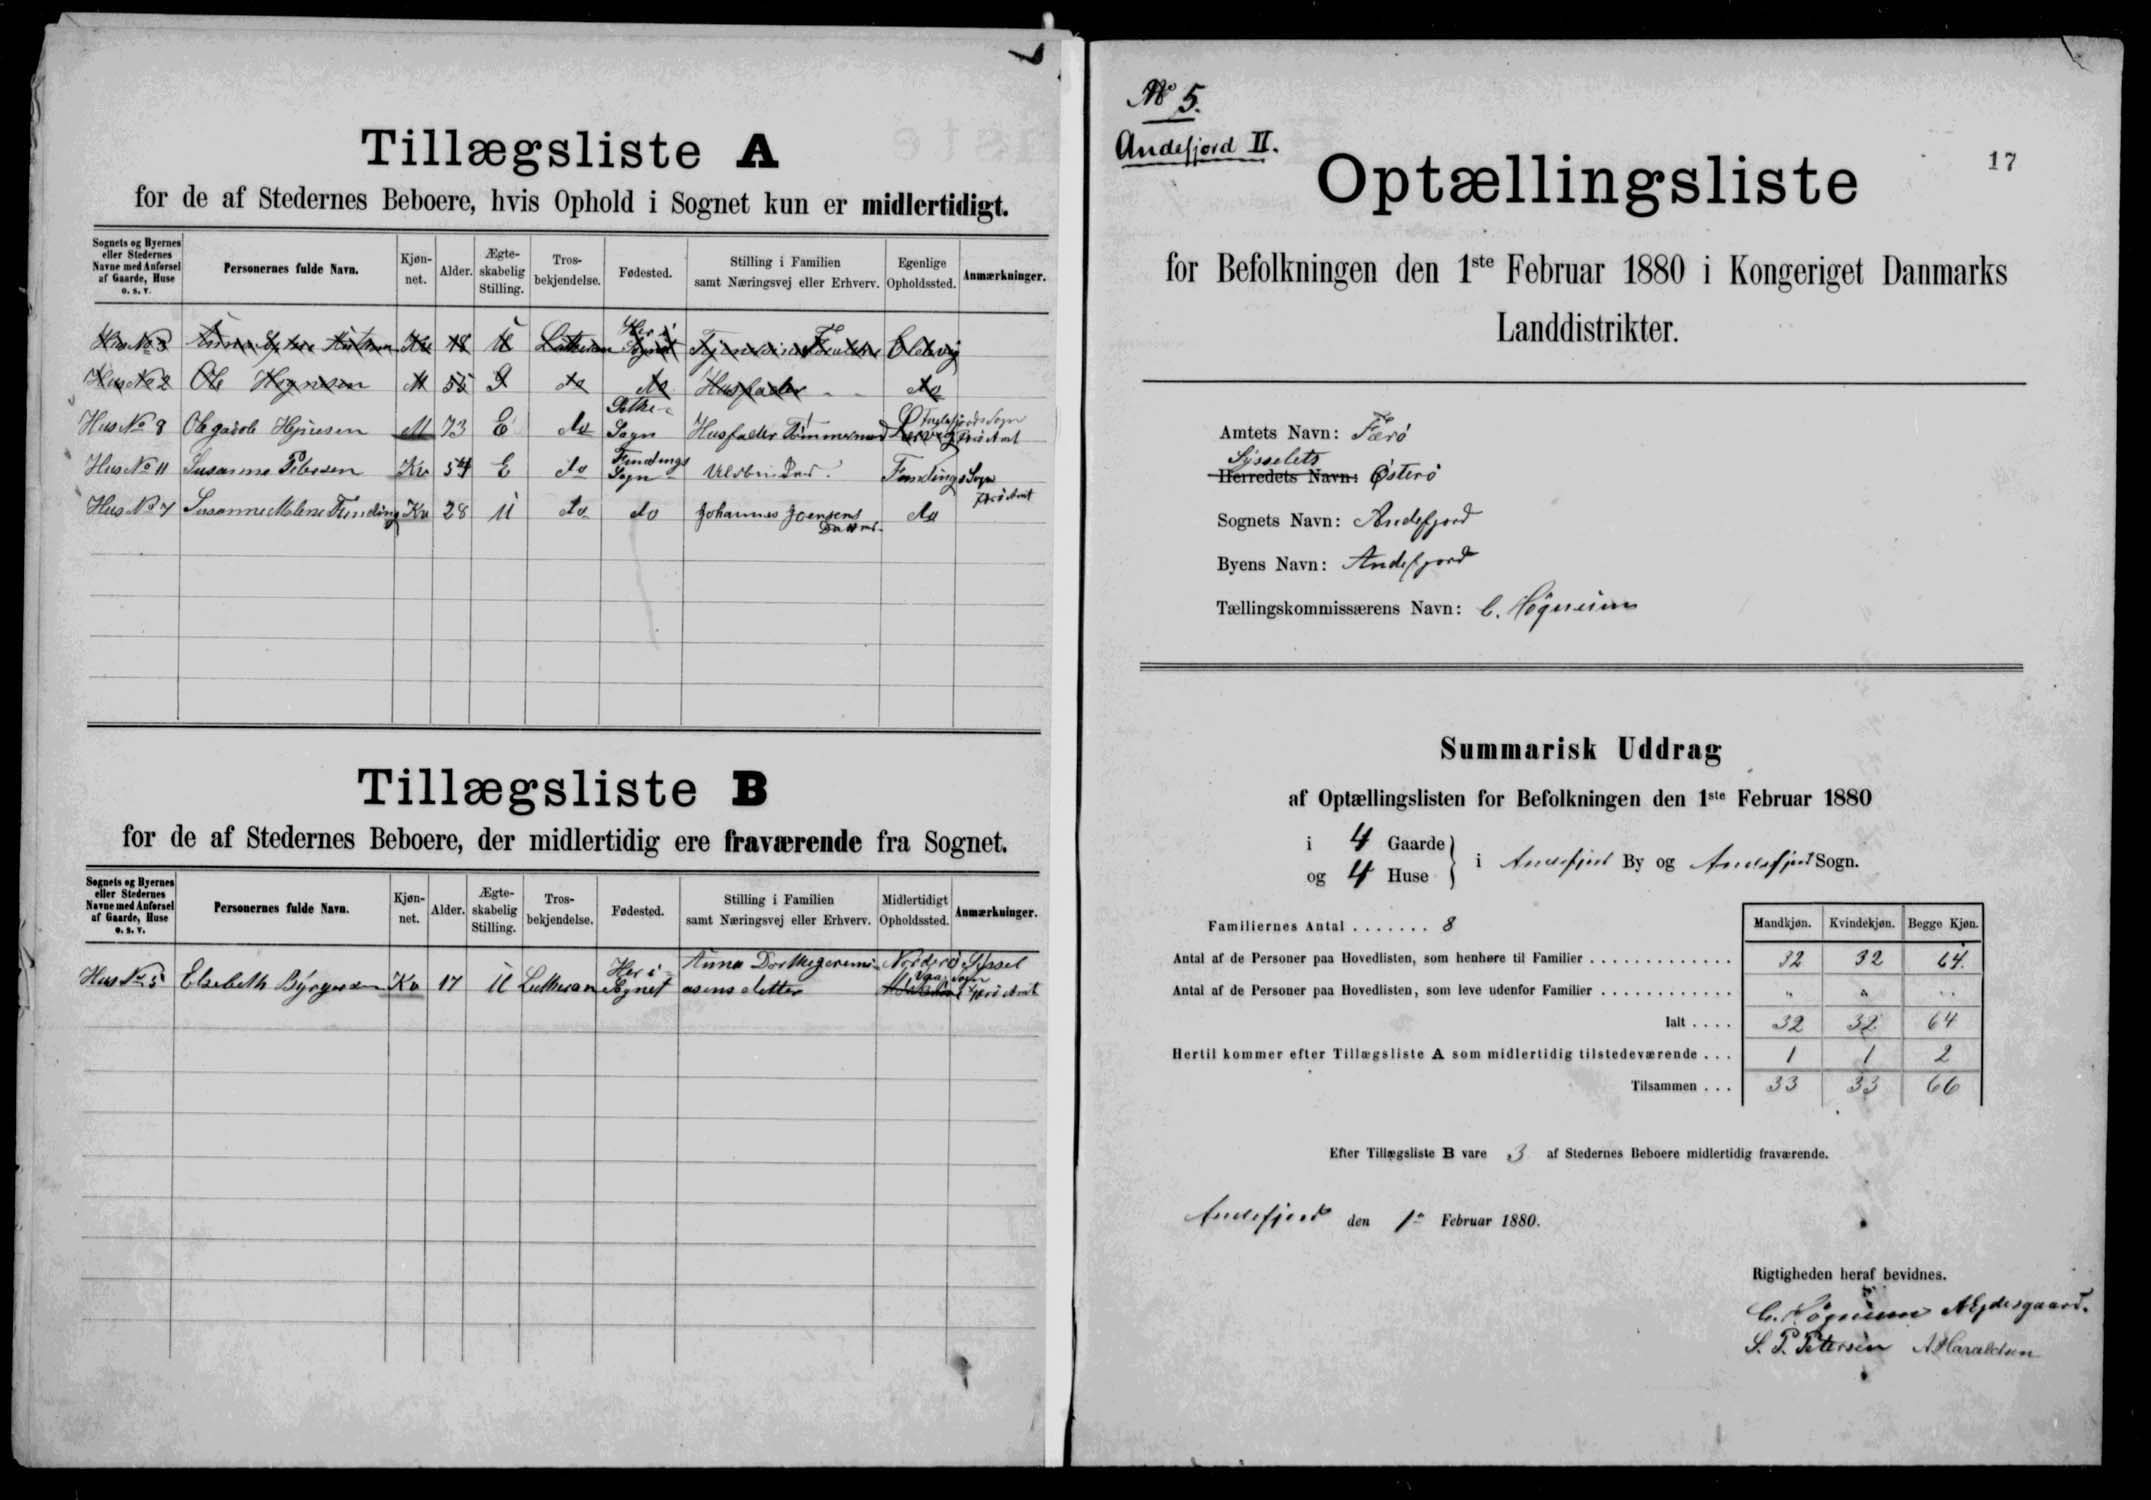 Tillægsliste A
for de af Stedernes Beboere, hvis Ophold i Sognet kun er midlertidigt.
Sognets og Byernes eller Stedernes Navne med Anførsel af Gaarde, Huse o. s. v. Personernes fulde Navn. Kjøn-net. Alder. Ægte-skabelig Stilling. Tros-bekjendelse. Fødested. Stilling i Familien samt Næringsvej eller Erhverv. Egenlige Opholdssted. Anmærkninger.
Hus No 3 Kv 18 U Lutheran Her i Sognet
Hus No 2 Ole Højnesen M 55 G do do Husfader do
Hus No 8 M 73 E do Sogn Husfader Færø Amt
Hus No 11 Susanne Petersen Kv 54 E do Fundings Sogn Fundings Sogn
Hus No 7 Susanne Malene Funding Kv 28 U do do Johannes Joensens do Færø Amt
Tillægsliste B
for de af Stedernes Beboere, der midlertidig ere fraværende fra Sognet.
Sognets og Byernes eller Stedernes Navne med Anførsel af Gaarde, Huse o. s. v. Personernes fulde Navn. Kjøn-net. Alder. Ægte-skabelig Stilling. Tros-bekjendelse. Fødested. Stilling i Familien samt Næringsvej eller Erhverv. Midlertidigt Opholdssted. Anmærkninger.
Hus No 5 Elsebeth Kv 17 U Lutheran Her i Sognet Anna Norderø Syssel Sogn Færø Amt
No 5.
Andefjord II.
17
Optællingsliste
for Befolkningen den 1ste Februar 1880 i Kongeriget Danmarks
Landdistrikter.
Amtets Navn: Færø
Sysselets
Herredets Navn: Østerø
Sognets Navn: Andefjord
Byens Navn: Andefjord
Tællingskommissærens Navn: C. Högnesen
Summarisk Uddrag
af Optællingslisten for Befolkningen den 1ste Februar 1880
i 4 Gaarde
og 4 Huse
i Andefjord By og Andefjord Sogn.
Mandkjøn. Kvindekjøn. Begge Kjøn.
Familiernes Antal ....... 8
Antal af de Personer paa Hovedlisten, som henhøre til Familier ............. 32 32 64.
Antal af de Personer paa Hovedlisten, som leve udenfor Familier ............ " " "
Ialt .... 32 32 64
Hertil kommer efter Tillægsliste A som midlertidig tilstedeværende ... 1 1 2
Tilsammen ... 33 33 66
Efter Tillægsliste B vare 3 af Stedernes Beboere midlertidig fraværende.
Andefjord den 1ste Februar 1880.
Rigtigheden heraf bevidnes.
C. Högnesen A Ejdesgaard.
S. P. Petersen A Haraldsen